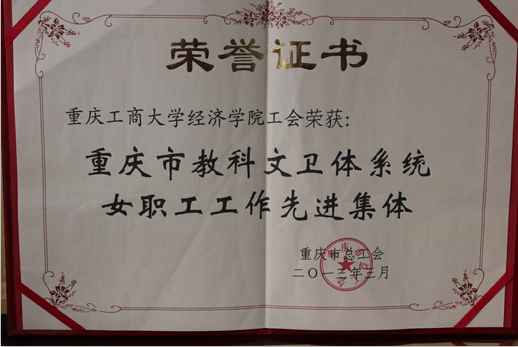 荣誉证书
重庆工商大学经济学院工会荣获:
重庆市教科文卫体系统
女职工工作先进集体
重庆市总工会
二〇一三年三月